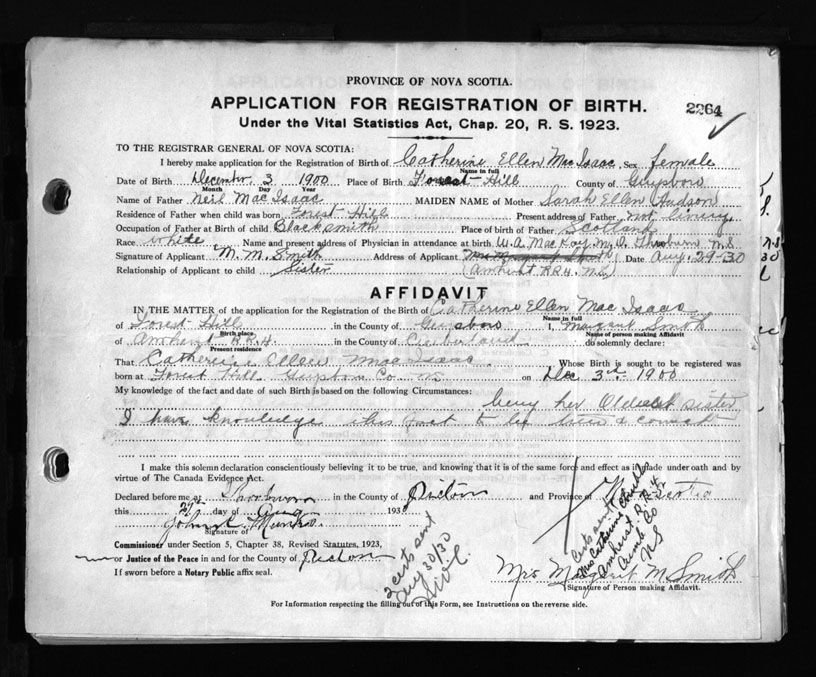 PROVINCE OF NOVA SCOTIA.
APPLICATION FOR REGISTRATION OF BIRTH.
2264
Under the Vital Statistics Act, Chap. 20, R. S. 1923.
TO THE REGISTRAR GENERAL OF NOVA SCOTIA:
I hereby make application for the Registration of Birth of Catherine Ellen MacIsaac Sex female
Name in full
Date of Birth December 3 1900 Place of Birth Forest Hill County of Guysboro
Month Day Year
Name of Father Neil MacIsaac MAIDEN NAME of Mother Sarah Ellen Hudson
Residence of Father when child was born Forest Hill Present address of Father not living
Occupation of Father at Birth of child Blacksmith Place of birth of Father Scotland
Race white Name and present address of Physician in attendance at birth W.A. MacKay M.D. Thorburn N.S
Signature of Applicant M. M. Smith Address of Applicant Date Aug. 29-30
Relationship of Applicant to child Sister (Amherst R.R.4. N.S.)
AFFIDAVIT
IN THE MATTER of the application for the Registration of the Birth of Catherine Ellen MacIsaac
Name in full
of Forest Hill in the County of Guysboro I, Margaret Smith
Birth place Name of person making Affidavit
of Amherst R.R.4. in the County of Cumberland do solemnly declare:
Present residence
That Catherine Ellen MacIsaac Whose Birth is sought to be registered was
born at Forest Hill Guysboro Co NS on Dec 3rd 1900
My knowledge of the fact and date of such Birth is based on the following Circumstances:
being her Oldest sister
I have knowledge this fact to be true & correct
I make this solemn declaration conscientiously believing it to be true, and knowing that it is of the same force and effect as if made under oath and by
virtue of The Canada Evidence Act.
Declared before me at Thorburn in the County of Pictou and Province of Nova Scotia
this 29th day of Aug 1930
John Munro
Signature of
Commissioner under Section 5, Chapter 38, Revised Statutes, 1923,
or Justice of the Peace in and for the County of Pictou
If sworn before a Notary Public affix seal.
2 certs sent
Aug 30/30
Certs sent
Mrs Catherine
Amherst R.R.4
Cumb Co
NS
Mrs Margaret M Smith
Signature of Person making Affidavit.
For Information respecting the filling out of this Form, see Instructions on the reverse side.